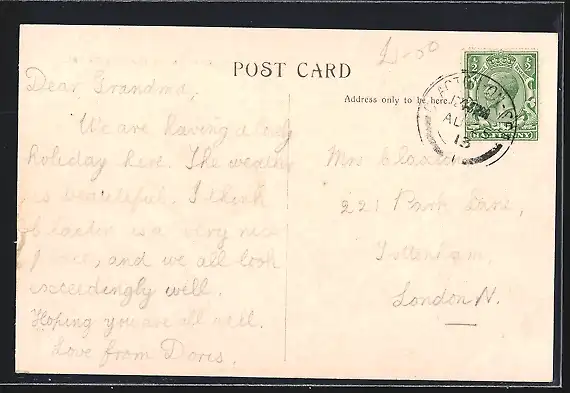 £1-00
POST CARD
Address only to be here
Dear Grandma,
We are having a
holiday here. The weather
is beautiful. I think
Clacton is a very nice
place, and we all look
exceedingly well.
Hoping you are all well.
Love from Doris.
CLACTON-ON
AU
13
Mrs Claxton
221 Park Lane,
Tottenham,
London N.